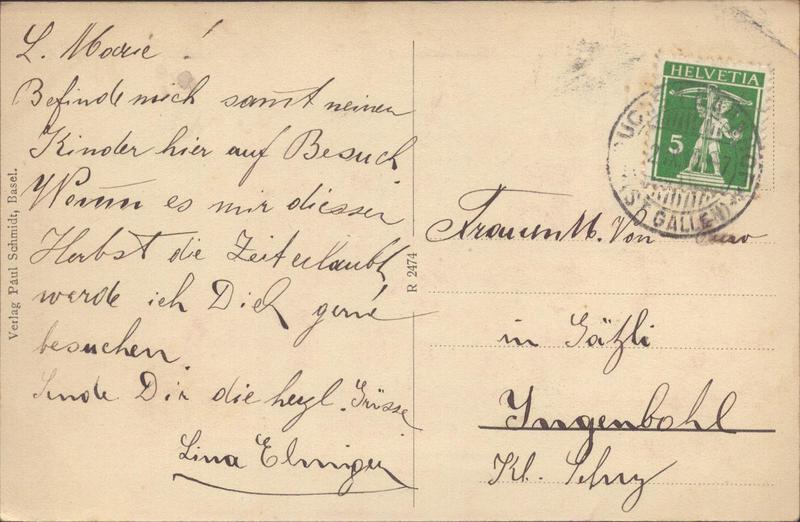 L. Marie!
Befinde mich samt meinen
Kinder hier auf Besuch
Wenn es mir diesser
Herbst die Zeit erlaubt,
werde ich Dich gerne
besuchen.
Sende Dir die herzl. Grüsse
Lina Elmiger
Verlag Paul Schmidt, Basel.
R 2474
HELVETIA
5
(ST. GALLEN)
Frauen M. Von
in Gätzli
Ingenbohl
Kt. Schwyz